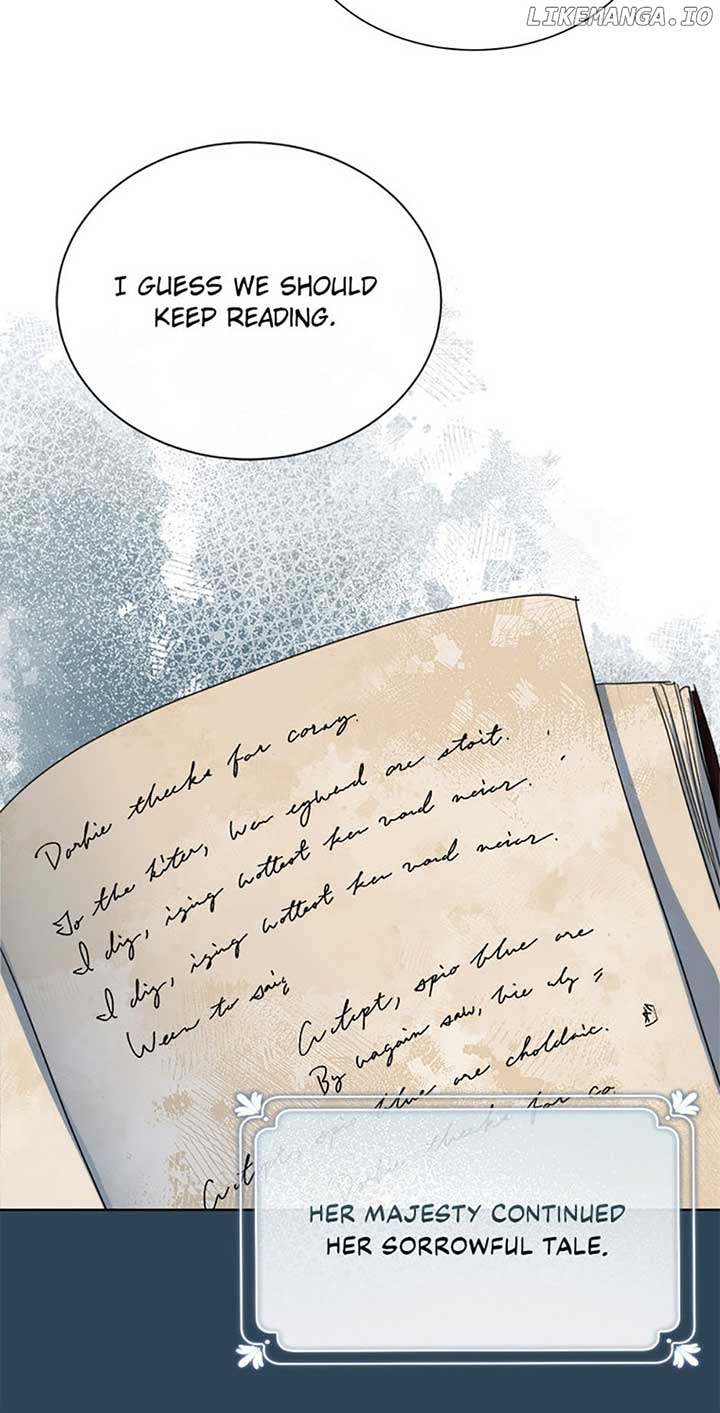 LIKEMANGA.IO
I GUESS WE SHOULD
KEEP READING.
Dorbie theeks for coray.
To the kiter, Wer egwerd are stoit.
I diy, izing wottest her vard neier.
I diy, izing wottest her vard neier.
Ween to saig
spio blue are
By wagain saw, bie
blue are choldaic.
theeks for co.
HER MAJESTY CONTINUED
HER SORROWFUL TALE.